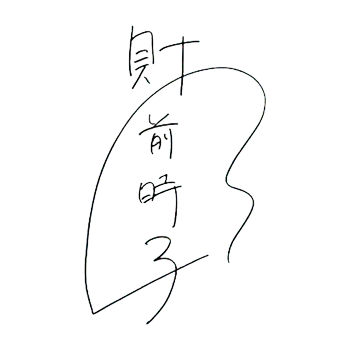 財前時子